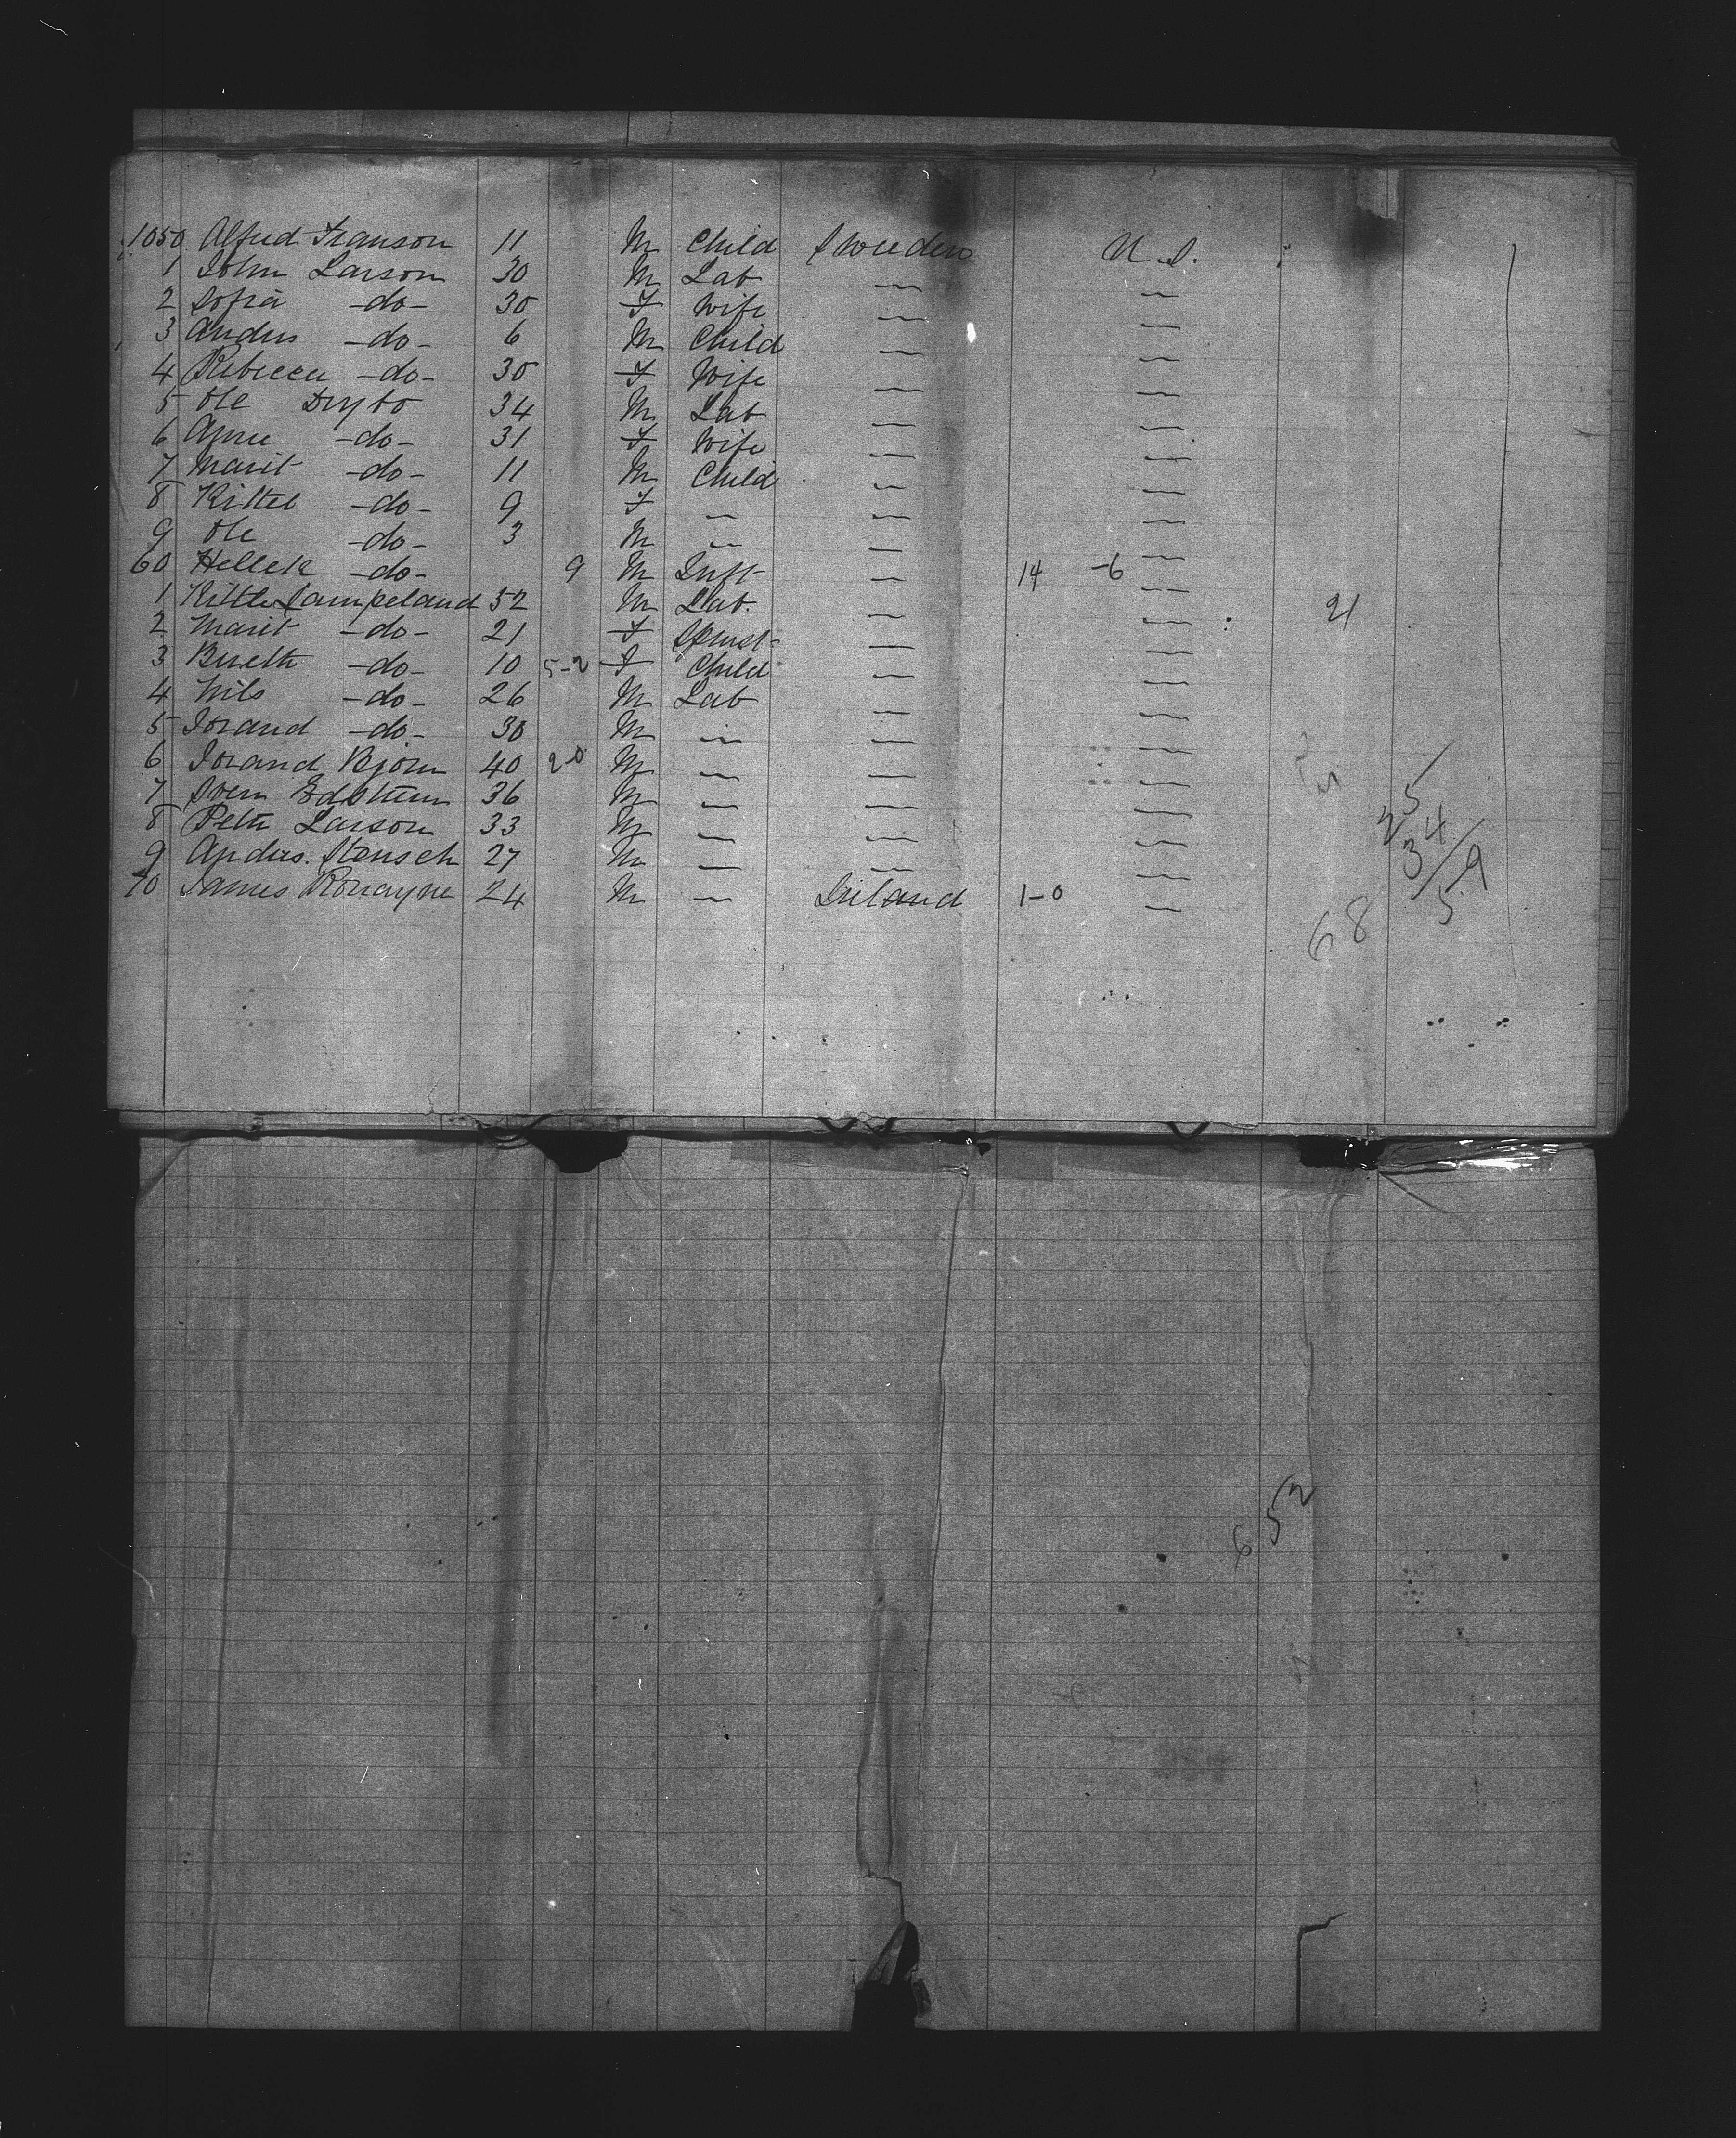 1050 Alfred Franson 11 M Child Sweeden U.S.
1 John Larson 30 M Lab — —
2 Sofia -do- 30 F Wife — —
3 Anders -do- 6 M Child — —
4 Rebecca -do- 30 F Wife — —
5 Ole Drybo 34 M Lab — —
6 Anne -do- 31 F Wife — —
7 Marit -do- 11 M Child — —
8 Kittel -do- 9 F — — —
9 Ole -do- 3 M — — —
60 Hellek -do- 9 M Inft — 14 -6 —
1 Kittle Sampeland 52 M Lab. — — 21
2 Marit -do- 21 F — —
3 -do- 10 5-2 F Child — —
4 Nils -do- 26 M Lab — —
5 Torand -do- 30 M — — —
6 Torand Bjorn 40 20 M — — —
7 Sven 36 M — — —
8 Petter Larson 33 M — — —
9 Anders 27 M — — —
70 James Ronayne 24 M — Ireland 1-0 —
25
34
59
68
652